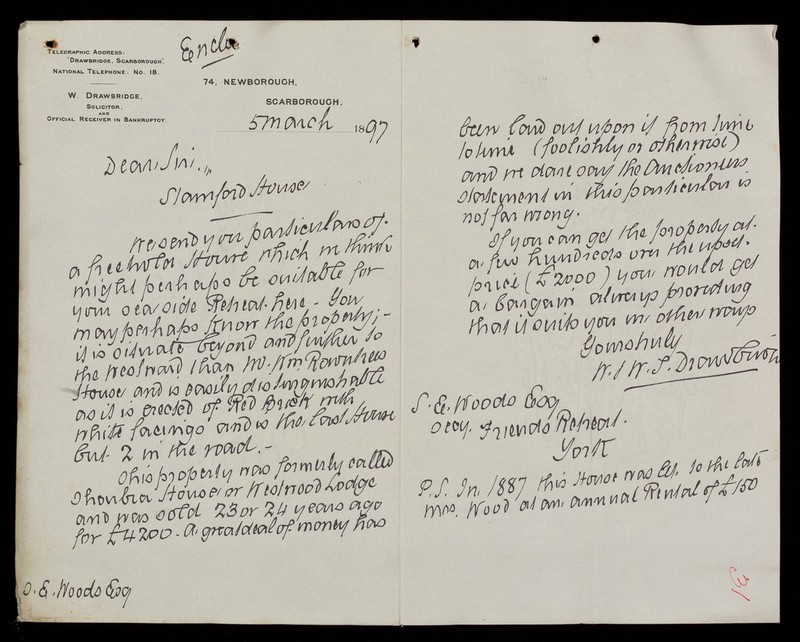 Enclo
TELEGRAPHIC ADDRESS:
"DRAWBRIDGE, SCARBOROUGH".
NATIONAL TELEPHONE: No. 18.
W. DRAWBRIDGE,
SOLICITOR,
AND
OFFICIAL RECEIVER IN BANKRUPTCY.
74, NEWBOROUGH,
SCARBOROUGH,
5 March 1897
Dear Sir,
Stamford House
We send you particulars of
a freehold House which we think
might perhaps be suitable for
your sea side Retreat here - You
may perhaps know the property; -
it is situate beyond and further to
the Westward than Mr. Wm. Rowntrees
House and is easily distinguishable
as it is erected of Red Brick with
white facings and is the last House
but 2 in the road. -
This property was formerly called
House or Westwood Lodge
and was sold 23 or 24 years ago
for £4200 - A great deal of money has
S. E. Woods Esq
been laid out upon it from time
to time (foolishly or otherwise)
and we dare say the Auctioneers
statement in this particular is
not far wrong.
If you can get the property at
a few hundreds over the upset
price (£2000) you would get
a bargain always providing
that it suits you in other ways
Yours truly
W. & W. S. Drawbridge
S. E. Woods Esq
Secy. Friends Retreat.
York
P.S. In 1887 this House was let to the late
Mrs. Wood at an annual Rental of £150